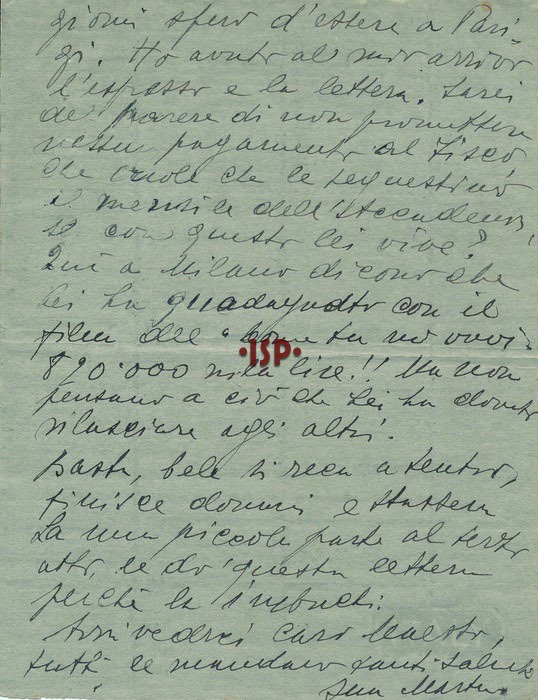 giorni spero d'essere a Pari-
gi. Ho avuto al mio arrivo
l'espresso e la lettera. Sarei
del parere di non promettere
nessun pagamento al Fisco
che vuole che le sequestrino
il mensile dell'Accademia,
se con questo lei vive?
Qui a Milano dicono che
Lei ha guadagnato con il
film del "Come tu mi vuoi"
890.000 mila lire!! Ma non
pensano a ciò che Lei ha dovuto
rilasciare agli altri.
Basta, si reca a teatro,
finisce domani e stasera
ha una piccola parte al terzo
atto, le do questa lettera
perché la imbuchi.
Arrivederci caro Maestro,
tutti le mandano tanti saluti
·ISP·